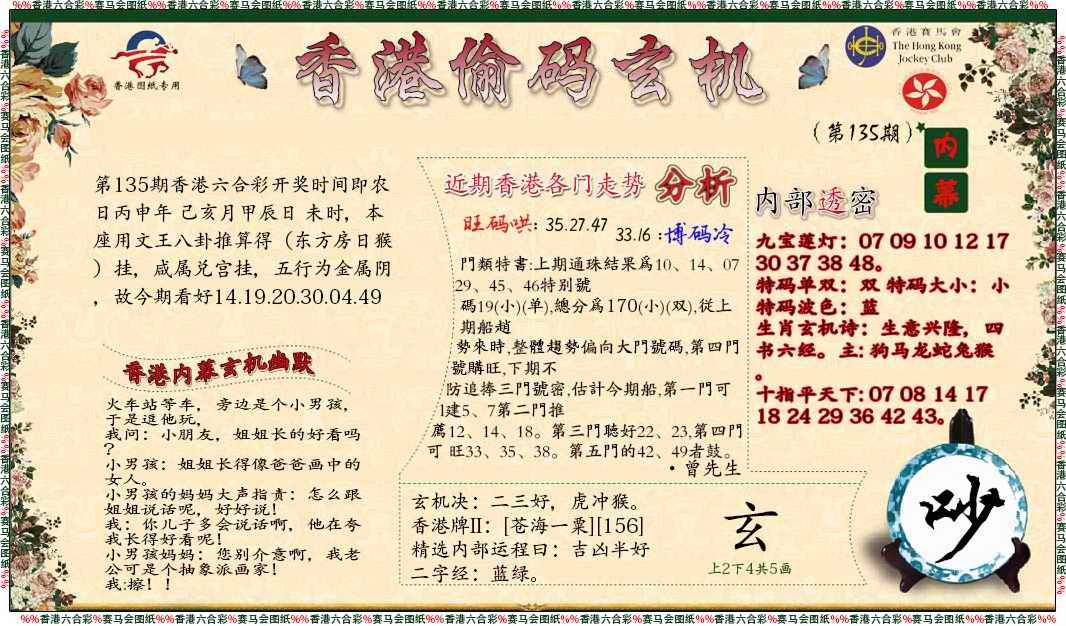 %%香港六合彩%赛马会图纸%%香港六合彩%赛马会图纸%%香港六合彩%赛马会图纸%%香港六合彩%赛马会图纸%%香港六合彩%赛马会图纸%%香港六合彩%赛马会图纸%%香港六合彩%%
香港图纸专用
香港偷码玄机
香港賽馬會
The Hong Kong
Jockey Club
(第135期)
内
幕
第135期香港六合彩开奖时间即农
日丙申年 己亥月甲辰日 未时，本
座用文王八卦推算得（东方房日猴
）挂，咸属兑宫挂，五行为金属阴
，故今期看好14.19.20.30.04.49
香港内幕玄机幽默
火车站等车，旁边是个小男孩，
于是逗他玩，
我问：小朋友，姐姐长的好看吗
？
小男孩：姐姐长得像爸爸画中的
女人。
小男孩的妈妈大声指责：怎么跟
姐姐说话呢，好好说！
我：你儿子多会说话啊，他在夸
我长得好看呢！
小男孩妈妈：您别介意啊，我老
公可是个抽象派画家！
我:擦！！
近期香港各门走势 分析
旺码哄: 35.27.47
33.16 :博码冷
門類特書:上期通珠結果爲10、14、07
29、45、46特别號
碼19(小)(单),總分爲170(小)(双),従上
期船趙
勢來時,整體趨勢偏向大門號碼,第四門
號購旺,下期不
防追捧三門號密,估計今期船,第一門可
1建5、7第二門推
薦12、14、18。第三門聽好22、23,第四門
可 旺33、35、38。第五門的42、49者鼓。
·曾先生
玄机决：二三好，虎冲猴。
香港牌II：[苍海一粟][156]
精选内部运程曰：吉凶半好
二字经：蓝绿。
玄
上2下4共5画
内部透密
九宝莲灯：07 09 10 12 17
30 37 38 48。
特码单双：双 特码大小：小
特码波色：蓝
生肖玄机诗：生意兴隆，四
书六经。主: 狗马龙蛇兔猴
。
十指平天下: 07 08 14 17
18 24 29 36 42 43。
吵
%%香港六合彩%赛马会图纸%%香港六合彩%赛马会图纸%%香港六合彩%赛马会图纸%%香港六合彩%赛马会图纸%%香港六合彩%赛马会图纸%%香港六合彩%赛马会图纸%%香港六合彩%%